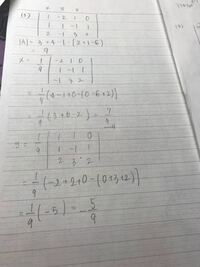 x x x
(3) | 1 -2 1 0
1 1 -1 1
2 -1 3 2
|A| = 3+4-1-(2+1-6)
= 9
x = 1/9 | -2 1 0
1 -1 1
-1 3 2
= 1/9 (4-1+0-(0-6+2))
= 1/9 (3+6-2) = 7/9
y = 1/9 | 1 1 0
1 -1 1
2 3 2
= 1/9 (-2+2+0-(0+3+2))
= 1/9 (-5) = -5/9